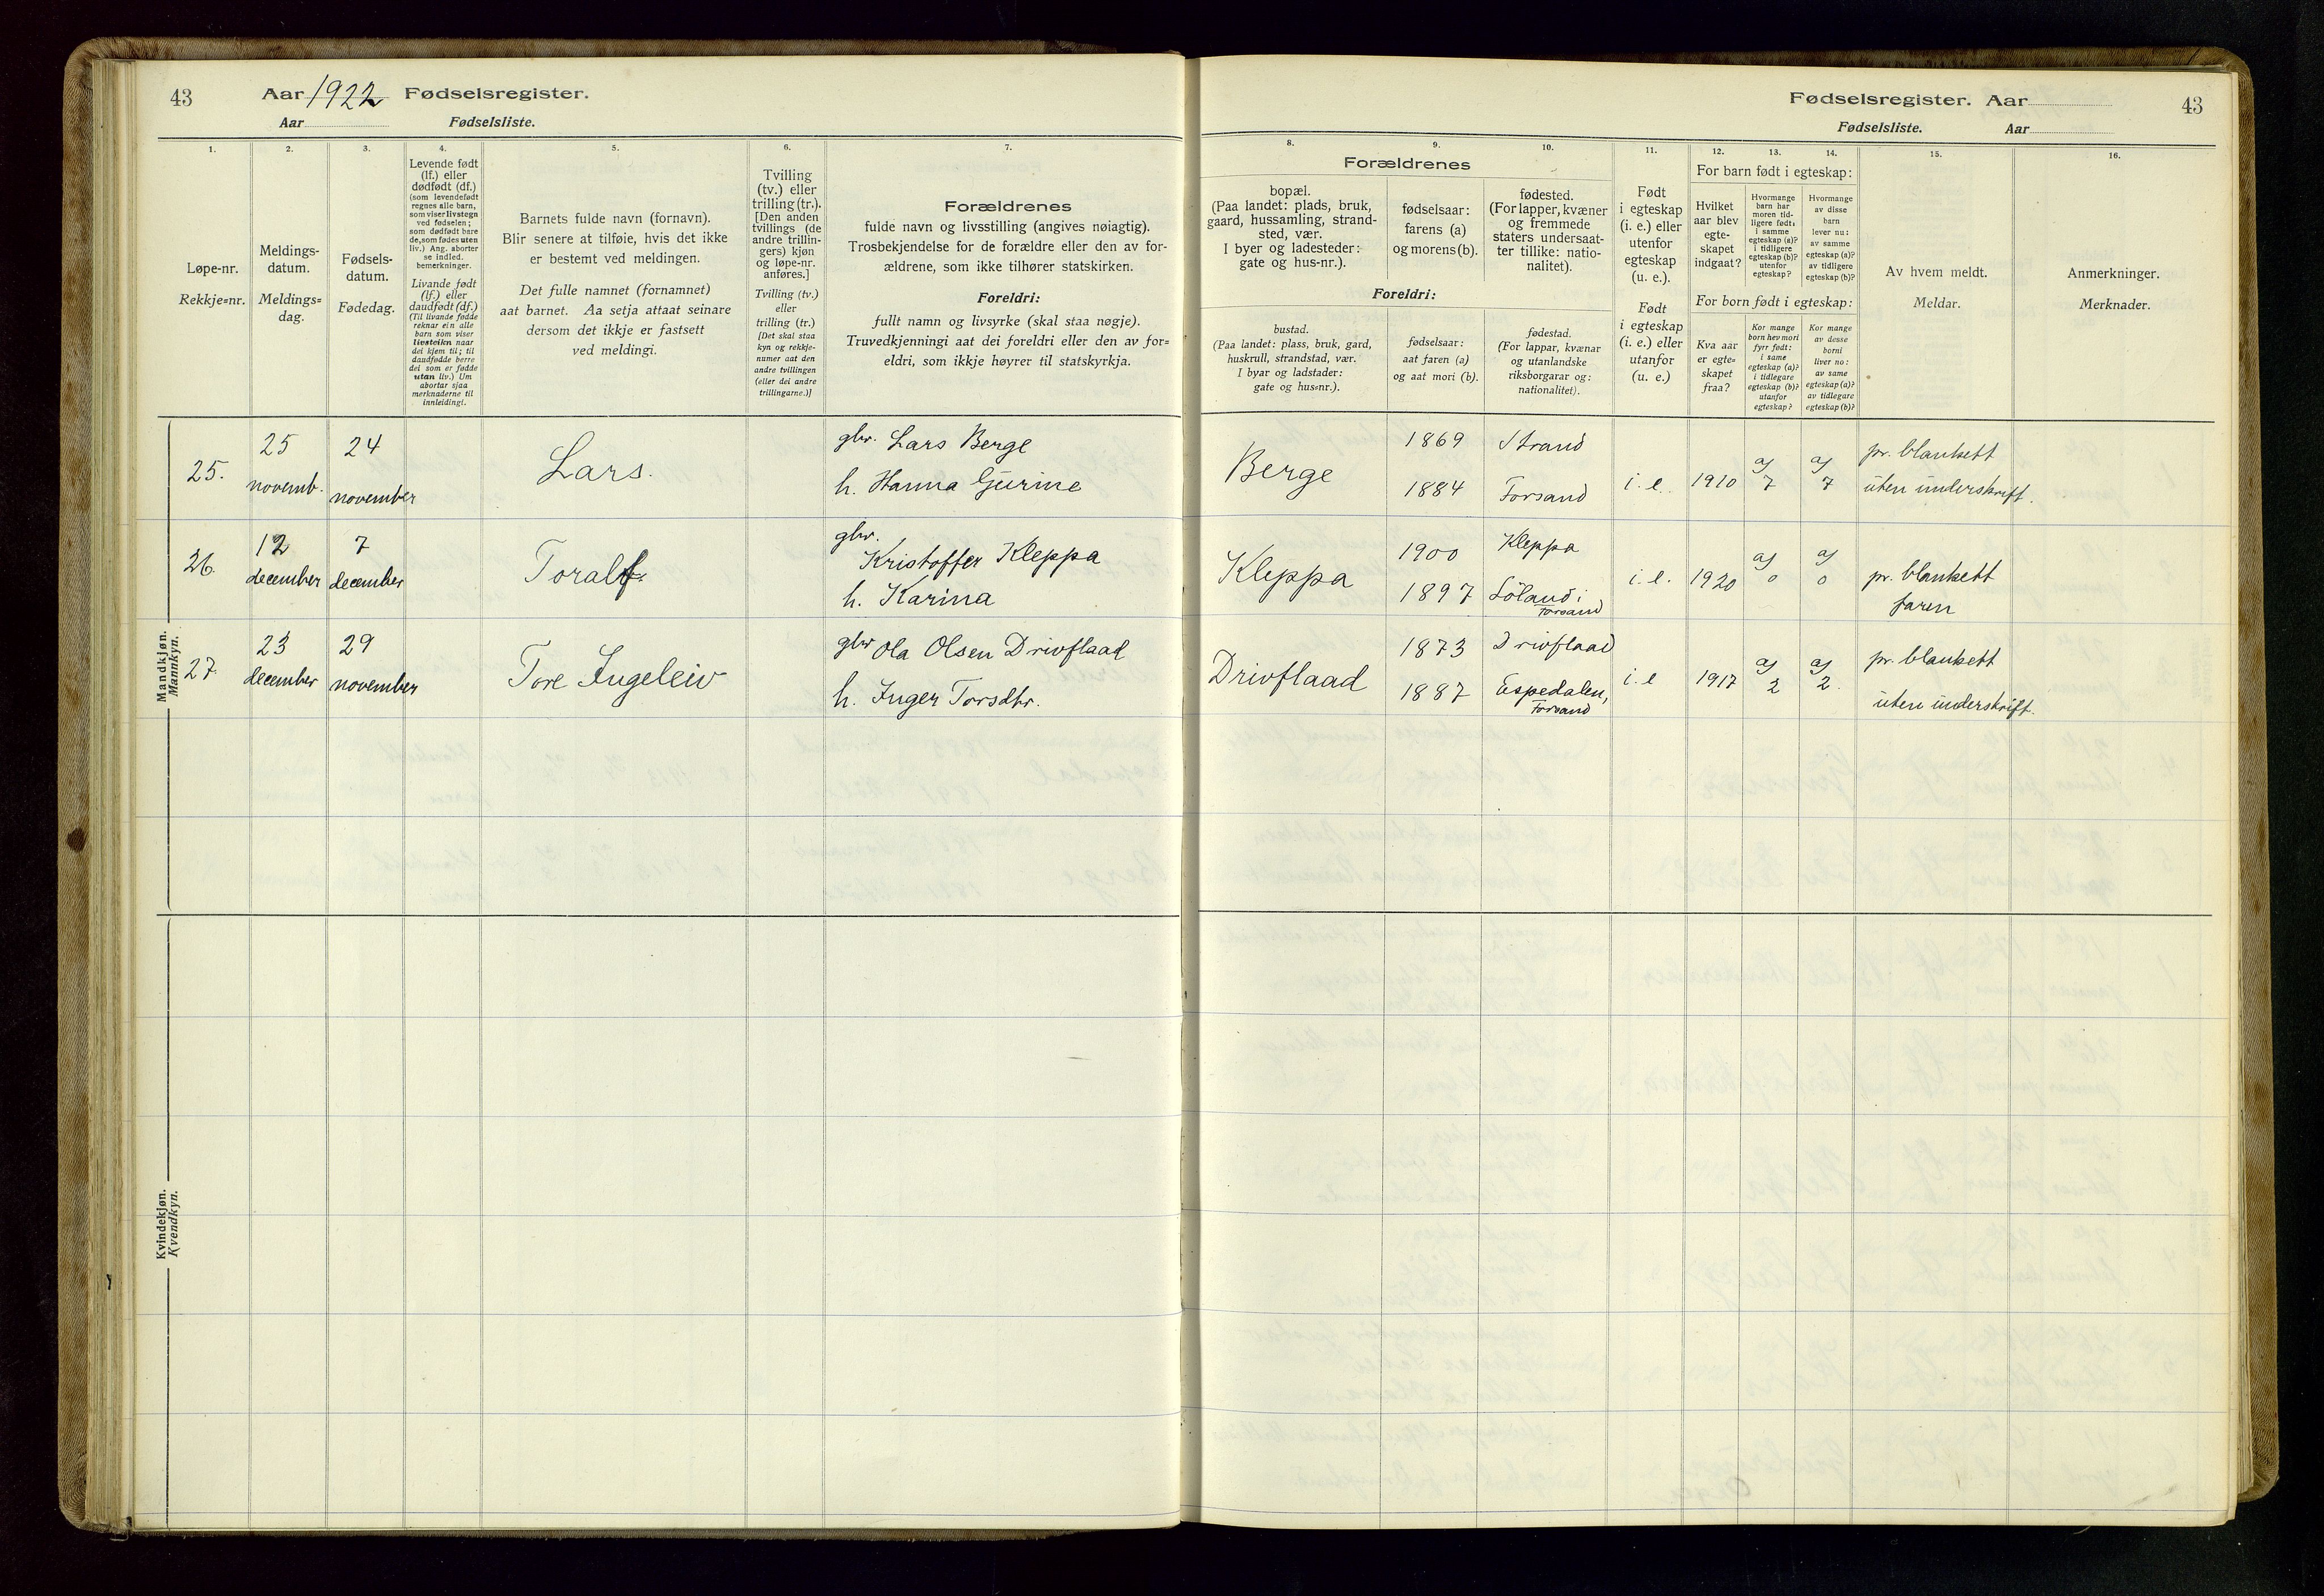 43 Aar 1922 Fødselsregister.
Aar Fødselsliste.
1. 2. 3. 4. 5. 6. 7.
Løpe-nr.
Rekkje=nr.
Meldings-
datum.
Meldings=
dag.
Fødsels-
datum.
Fødedag.
Levende født
(lf.) eller
dødfødt (df.)
(som levendefødt
regnes alle barn,
som viser livstegn
ved fødselen;
som dødfødt bare
de, som fødes uten
liv.) Ang. aborter
se indled.
bemerkninger.
Livande født
(lf.) eller
daudfødt (df.)
(Til livande fødde
reknar ein alle
barn som viser
livsteikn naar
dei kjem til; til
daudfødde berre
dei som er fødde
utan liv.) Um
abortar sjaa
merknaderne til
innleidingi.
Barnets fulde navn (fornavn).
Blir senere at tilføie, hvis det ikke
er bestemt ved meldingen.
Det fulle namnet (fornamnet)
aat barnet. Aa setja attaat seinare
dersom det ikkje er fastsett
ved meldingi.
Tvilling
(tv.) eller
trilling (tr.).
[Den anden
tvillings (de
andre trillin-
gers) kjøn
og løpe-nr.
anføres.]
Tvilling (tv.)
eller
trilling (tr.)
[Det skal staa
kyn og rekkje-
numer aat den
andre tvillingen
(eller dei andre
trillingarne.)]
Forældrenes
fulde navn og livsstilling (angives nøiagtig).
Trosbekjendelse for de forældre eller den av for-
ældrene, som ikke tilhører statskirken.
Foreldri:
fullt namn og livsyrke (skal staa nøgje).
Truvedkjenningi aat dei foreldri eller den av for=
eldri, som ikkje høyrer til statskyrkja.
Mandkjøn.
Mannkyn.
25. 25 novemb. 24 november Lars. gbr. Lars Berge
h. Hanna Gurine
26. 12 december 7 december Toralf. gbr.
Kristoffer Kleppa
h. Karina
27. 23 december 29 november Tore Ingeleiv gbr Ola Olsen Drivflaad
h. Inger Torsdtr.
Kvindekjøn.
Kvendkyn.
Fødselsregister. Aar 43
Fødselsliste. Aar
8. 9. 10. 11. 12. 13. 14. 15. 16.
Forældrenes
bopæl.
(Paa landet: plads, bruk,
gaard, hussamling, strand-
sted, vær.
I byer og ladesteder:
gate og hus-nr.).
fødselsaar:
farens (a)
og morens (b).
fødested.
(For lapper, kvæner
og fremmede
staters undersaat-
ter tillike: natio-
nalitet).
Foreldri:
bustad.
(Paa landet: plass, bruk, gard,
huskrull, strandstad, vær.
I byar og ladstader:
gate og hus=nr.).
fødselsaar:
aat faren (a)
og aat mori (b).
fødestad.
(For lappar, kvænar
og utanlandske
riksborgarar og:
nationalitet).
Født
i egteskap
(i. e.) eller
utenfor
egteskap
(u. e.).
Født
i egteskap
(i. e.) eller
utanfor
(u. e.)
For barn født i egteskap:
Hvilket
aar blev
egte-
skapet
indgaat?
Hvormange
barn har
moren tid-
ligere født:
i samme
egteskap (a)?
i tidligere
egteskap (b)?
utenfor
egteskap?
Hvormange
av disse
barn
lever nu:
av samme
egteskap (a)?
av tidligere
egteskap (b)?
For born født i egteskap:
Kva aar
er egte=
skapet
fraa?
Kor mange
born hev mori
fyrr født:
i same
egteskap (a)?
i tidlegare
egteskap (b)?
utanfor
egteskap?
Kor mange
av desse
borni
liver no:
av same
egteskap (a)?
av tidlegare
egteskap (b)?
Av hvem meldt.
Meldar.
Anmerkninger.
Merknader.
Berge 1869 Strand
1884 Forsand i. e. 1910 a) 7 a) 7 pr. blankett
uten underskrift.
Kleppa 1900 Kleppa
1897 Löland i
Forsand i. e. 1920 a) 0 a) 0 pr. blankett
faren
Drivflaad 1873 Drivflaad
1887 Espedalen,
Forsand i. e 1917 a) 2 a) 2. pr. blankett
uten underskrift.